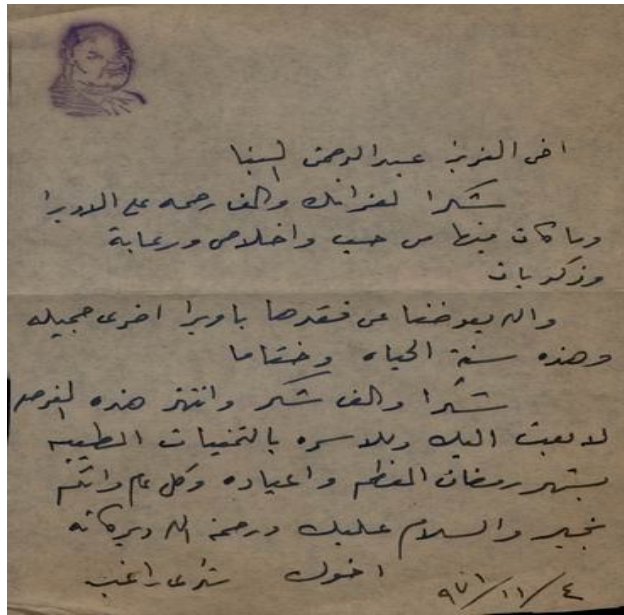 اخى العزيز عبد الرحمن البنا
شكرا لعزائك والف رحمه على الاوبرا
وما كان فيها من حب واخلاص ورعاية
وذكريات
والله يعوضنا عن فقدها باوبرا اخرى جميله
وهذه سنة الحياه وختاما
شكرا والف شكر وانتهز هذه الفرصه
لابعث اليك وللاسره بالتمنيات الطيبه
بشهر رمضان المعظم واعياده وكل عام وانتم
بخير والسلام عليك ورحمة الله وبركاته
اخوك راغب
٤/١١/٩٧١